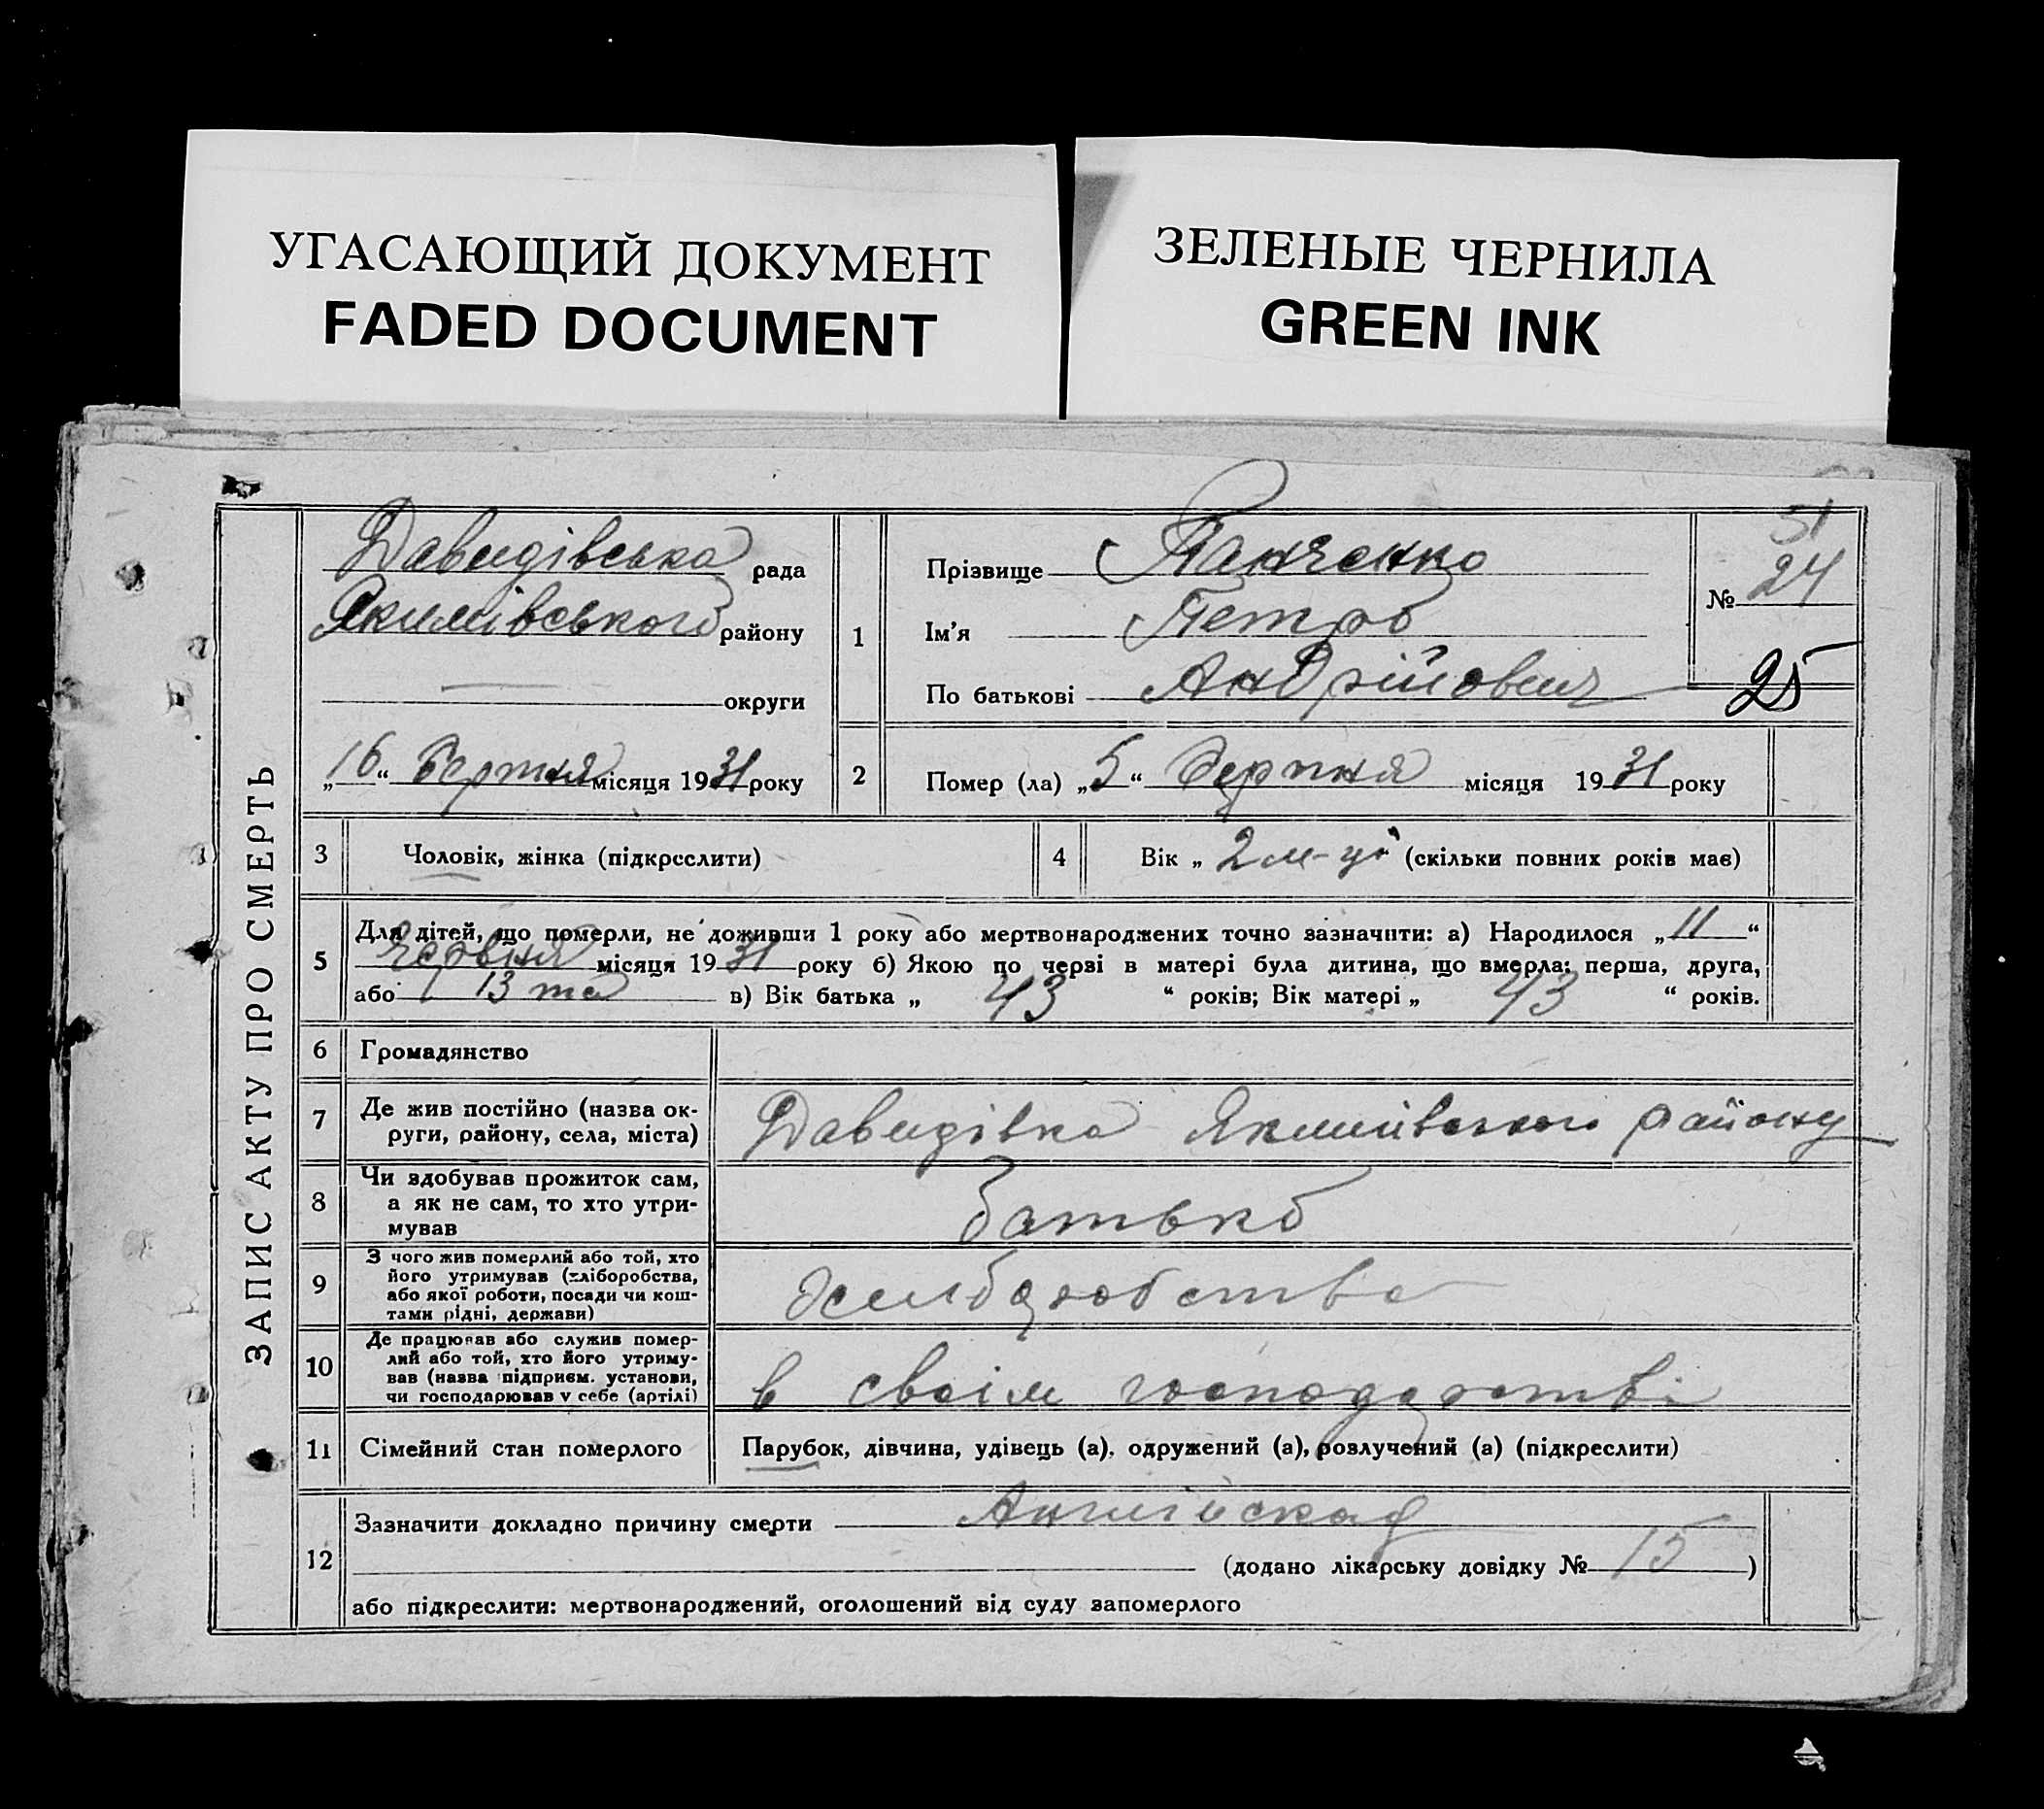 УГАСАЮЩИЙ ДОКУМЕНТ
FADED DOCUMENT
ЗЕЛЕНЫЕ ЧЕРНИЛА
GREEN INK
ЗАПИС АКТУ ПРО СМЕРТЬ
Давидівська рада
Якимівського району
— округи
„16“ Серпня місяця 1931 року
1
Прізвище Панченко
Ім'я Петро
По батькові Андрійович
51
№ 24
25
2 Помер (ла) „5“ Серпня місяця 1931 року
3 Чоловік, жінка (підкреслити)
4 Вік „ 2 м-ці “ (скільки повних років має)
5 Для дітей, що померли, не доживши 1 року або мертвонароджених точно зазначити: а) Народилося „11“
Червня місяця 1931 року б) Якою по черві в матері була дитина, що вмерла: перша, друга,
або 13 та в) Вік батька „ 43 “ років; Вік матері „ 43 “ років.
6 Громадянство
7 Де жив постійно (назва ок-
руги, району, села, міста)
Давидівка Якимівського району
8 Чи здобував прожиток сам,
а як не сам, то хто утри-
мував
батько
9 З чого жив померлий або той, хто
його утримував (хліборобства,
або якої роботи, посади чи кош-
тами рідні, держави)
10 Де працював або служив помер-
лий або той, хто його утриму-
вав (назва підприєм. установи,
чи господарював у себе (артілі)
в своїм господарстві
11 Сімейний стан померлого
Парубок, дівчина, удівець (а), одружений (а), розлучений (а) (підкреслити)
12 Зазначити докладно причину смерти Англійская
(додано лікарську довідку № 15 )
або підкреслити: мертвонароджений, оголошений від суду запомерлого